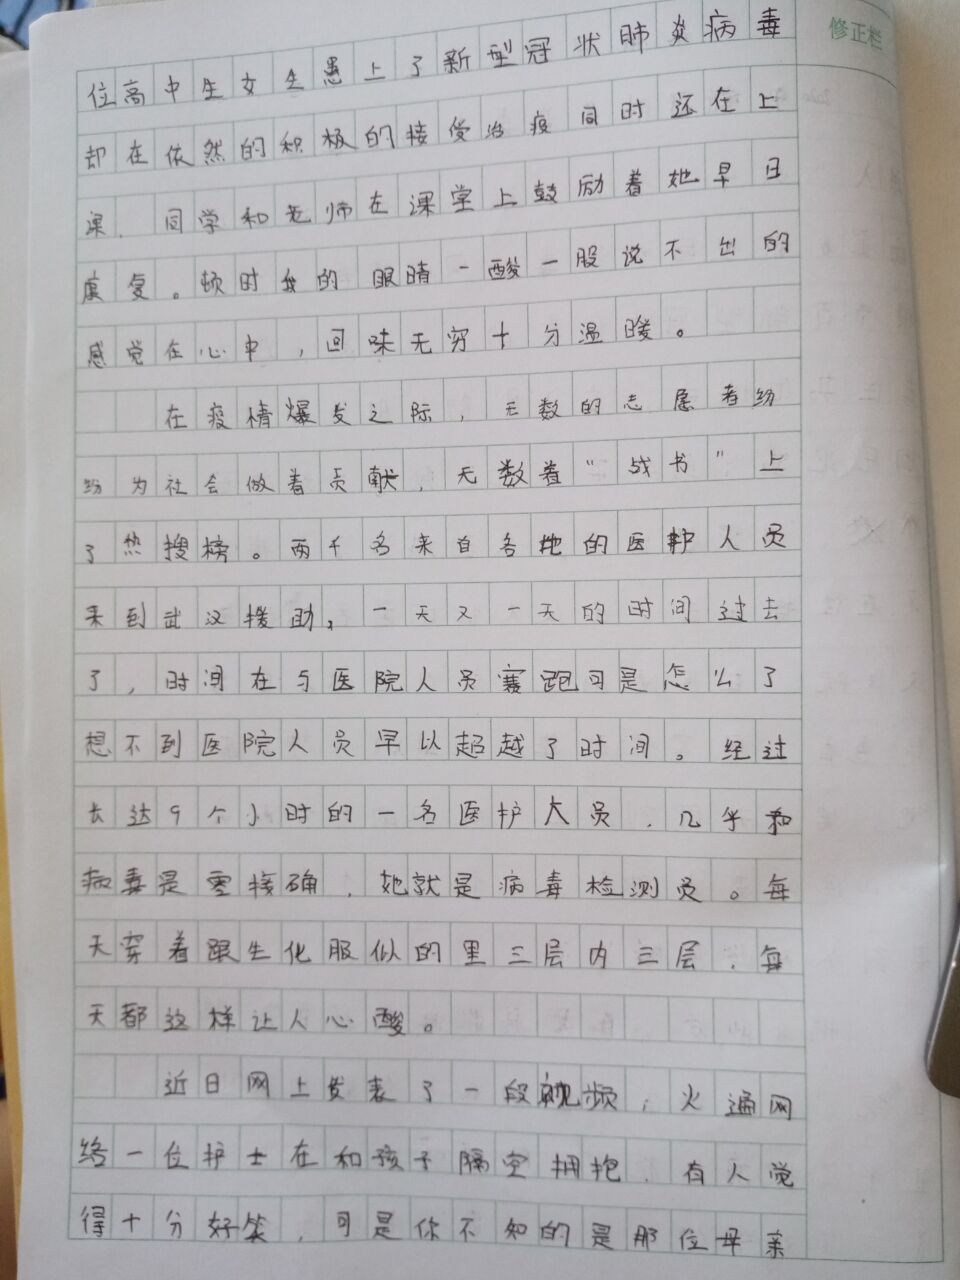 修正栏
位高中生女生患上了新型冠状肺炎病毒
却在依然的积极的接受治疫同时还在上
课、同学和老师在课堂上鼓励着她早日
康复。顿时我的眼睛一酸一股说不出的
感觉在心中，回味无穷十分温暖。
在疫情爆发之际，无数的志愿者纷
纷为社会做着贡献，无数着“战书”上
了热搜榜。两千名来自各地的医护人员
来到武汉援助，一天又一天的时间过去
了，时间在与医院人员赛跑可是怎么了
想不到医院人员早以超越了时间。经过
长达9个小时的一名医护人员，几乎和
病毒是零接确，她就是病毒检测员。每
天穿着跟生化服似的里三层内三层，每
天都这样让人心酸。
近日网上发表了一段视频，火通网
络一位护士在和孩子隔空拥抱，有人觉
得十分好笑，可是你不知的是那位母亲